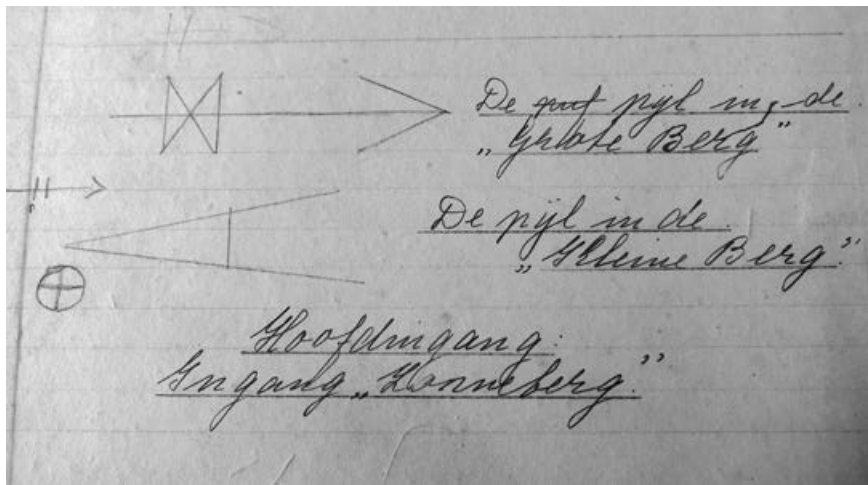 De pijl in de
„Grote Berg"
De pijl in de
„Kleine Berg."
Hoofdingang:
Ingang „Zonneberg."